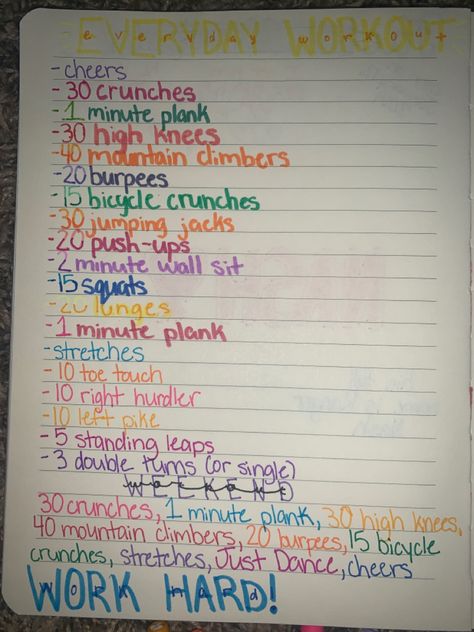 EVERYDAY WORKOUT
everyday workout
- cheers
- 30 crunches
- 1 minute plank
- 30 high knees
- 40 mountain climbers
- 20 burpees
- 15 bicycle crunches
- 30 jumping jacks
- 20 push-ups
- 2 minute wall sit
- 15 squats
- 20 lunges
- 1 minute plank
- stretches
- 10 toe touch
- 10 right hurdler
- 10 left pike
- 5 standing leaps
- 3 double turns (or single)
WEEKEND
30 crunches, 1 minute plank, 30 high knees,
40 mountain climbers, 20 burpees, 15 bicycle
crunches, stretches, Just Dance, cheers
WORK HARD!